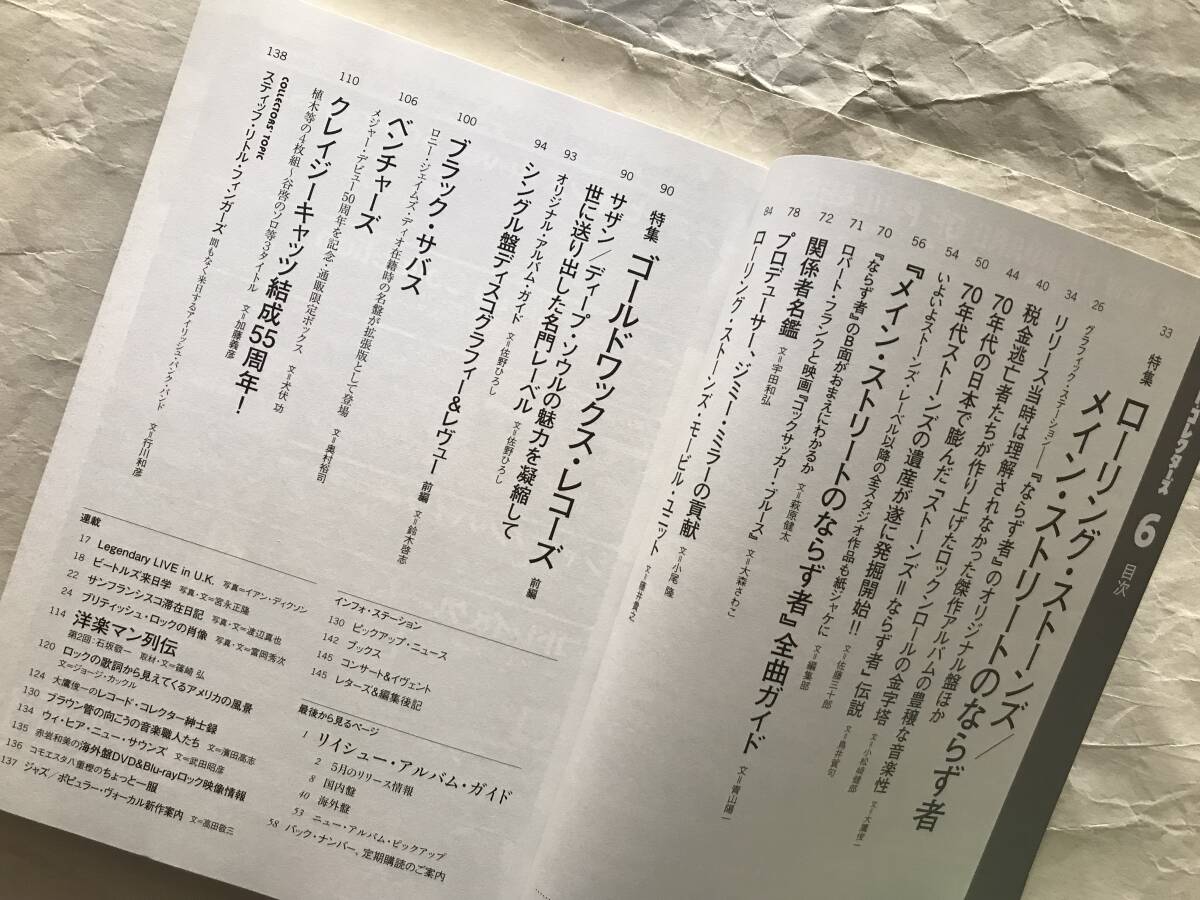 コレクターズ
6 目次
33 特集 ローリング・ストーンズ/
メイン・ストリートのならず者
26 グラフィック・ステーション──『ならず者』のオリジナル盤ほか
34 リリース当時は理解されなかった傑作アルバムの豊穣な音楽性 文=大鷹俊一
40 税金逃亡者たちが作り上げたロックンロールの金字塔 文=小松崎健郎
44 70年代の日本で膨んだ「ストーンズ=ならず者」伝説 文=鳥井賀句
50 70年代ストーンズの遺産が遂に発掘開始!! 文=佐藤三十郎
54 いよいよストーンズ・レーベル以降の全スタジオ作品も紙ジャケに 文=編集部
56 『メイン・ストリートのならず者』全曲ガイド 文=青山陽一
70 『ならず者』のB面がおまえにわかるか 文=萩原健太
71 ロバート・フランクと映画『コックサッカー・ブルース』 文=大森さわこ
72 関係者名鑑 文=宇田和弘
78 プロデューサー、ジミー・ミラーの貢献 文=小尾 隆
84 ローリング・ストーンズ・モービル・ユニット 文=藤井貴之
90 特集 ゴールドワックス・レコーズ 前編
90 サザン/ディープ・ソウルの魅力を凝縮して
世に送り出した名門レーベル 文=佐野ひろし
93 オリジナル・アルバム・ガイド 文=佐野ひろし
94 シングル盤ディスコグラフィー&レヴュー 前編 文=鈴木啓志
100 ブラック・サバス
ロニー・ジェイムズ・ディオ在籍時の名盤が拡張版として登場 文=奥村裕司
106 ベンチャーズ
メジャー・デビュー50周年を記念・通販限定ボックス 文=犬伏 功
110 クレイジーキャッツ結成55周年!
植木等の4枚組〜谷啓のソロ等3タイトル 文=加藤義彦
138 COLLECTORS' TOPIC
スティッフ・リトル・フィンガーズ 間もなく来日するアイリッシュ・パンク・バンド 文=行川和彦
連載
17 Legendary LIVE in U.K. 写真=イアン・ディクソン
18 ビートルズ来日学 写真・文=宮永正隆
22 サンフランシスコ滞在日記 写真・文=渡辺真也
24 ブリティッシュ・ロックの肖像 写真・文=富岡秀次
114 洋楽マン列伝
第2回:石坂敬一 取材・文=篠崎 弘
120 ロックの歌詞から見えてくるアメリカの風景
文=ジョージ・カックル
124 大鷹俊一のレコード・コレクター紳士録
130 ブラウン管の向こうの音楽職人たち 文=濱田高志
134 ウィ・ヒア・ニュー・サウンズ 文=武田昭彦
135 赤岩和美の海外盤DVD&Blu-rayロック映像情報
136 コモエスタ八重樫のちょっと一服
137 ジャズ/ポピュラー・ヴォーカル新作案内 文=高田敬三
インフォ・ステーション
130 ピックアップ・ニュース
142 ブックス
145 コンサート&イヴェント
145 レターズ&編集後記
最後から見るページ
1 リイシュー・アルバム・ガイド
2 5月のリリース情報
8 国内盤
40 海外盤
53 ニュー・アルバム・ピックアップ
58 バック・ナンバー、定期購読のご案内